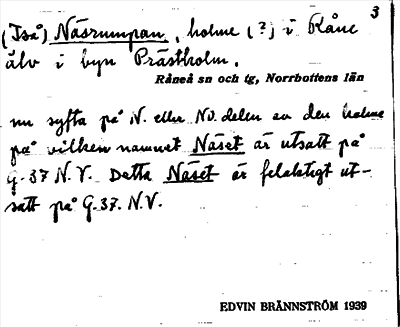 3
(Iså) Näsrumpan, holme (?) i Råne
älv i byn Prästholm.
Råneå sn och tg, Norrbottens län
nu syfta på N. eller NO. delen av den holme
på vilken namnet Näset är utsatt på
G. 37 N.V. Detta Näset är felaktigt ut-
satt på G. 37. N.V.
EDVIN BRÄNNSTRÖM 1939